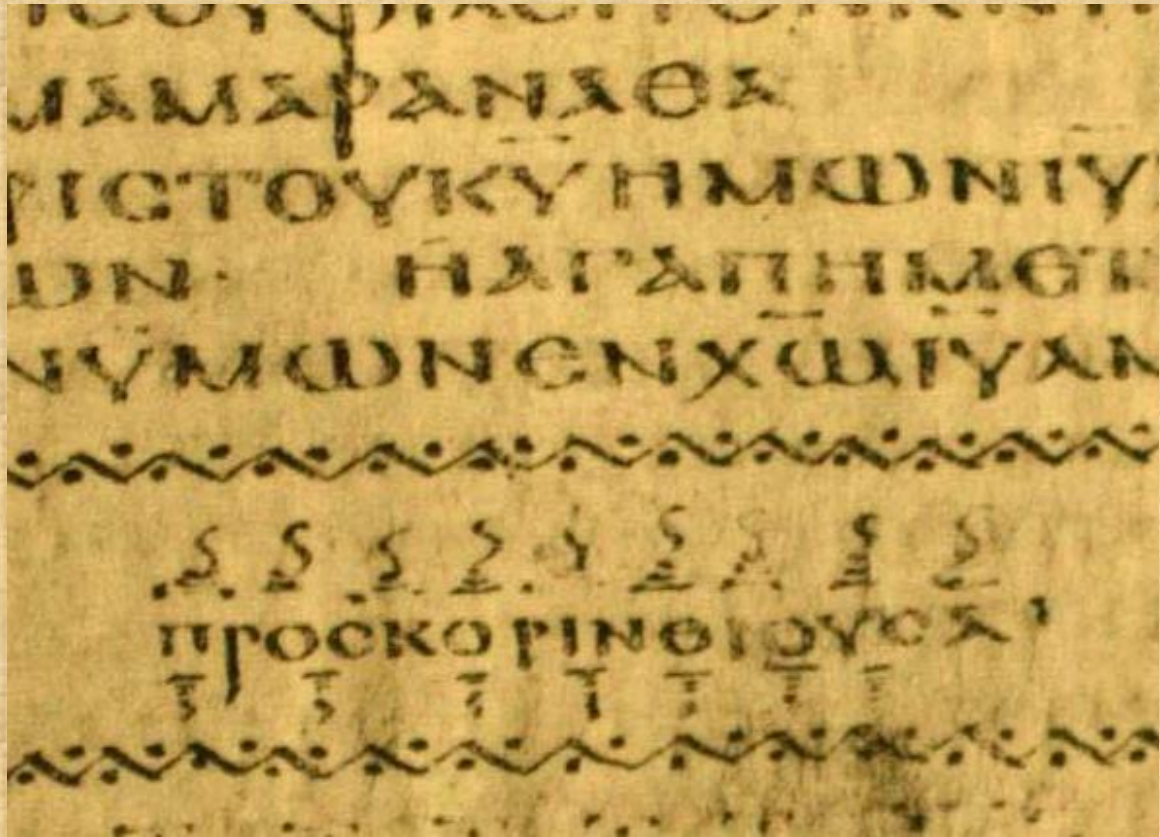 ΜΑΜΑΡΑΝΑΘΑ
ΡΙϹΤΟΥΚΥ̅ΗΜΩΝΙΥ̅
ΩΝ· ΗΑΓΑΠΗΜΕΤ
ΝΫΜΩΝΕΝΧΩ̅ΙΥ̅ΑΜ
ΠΡΟϹΚΟΡΙΝΘΙΟΥϹΑ'